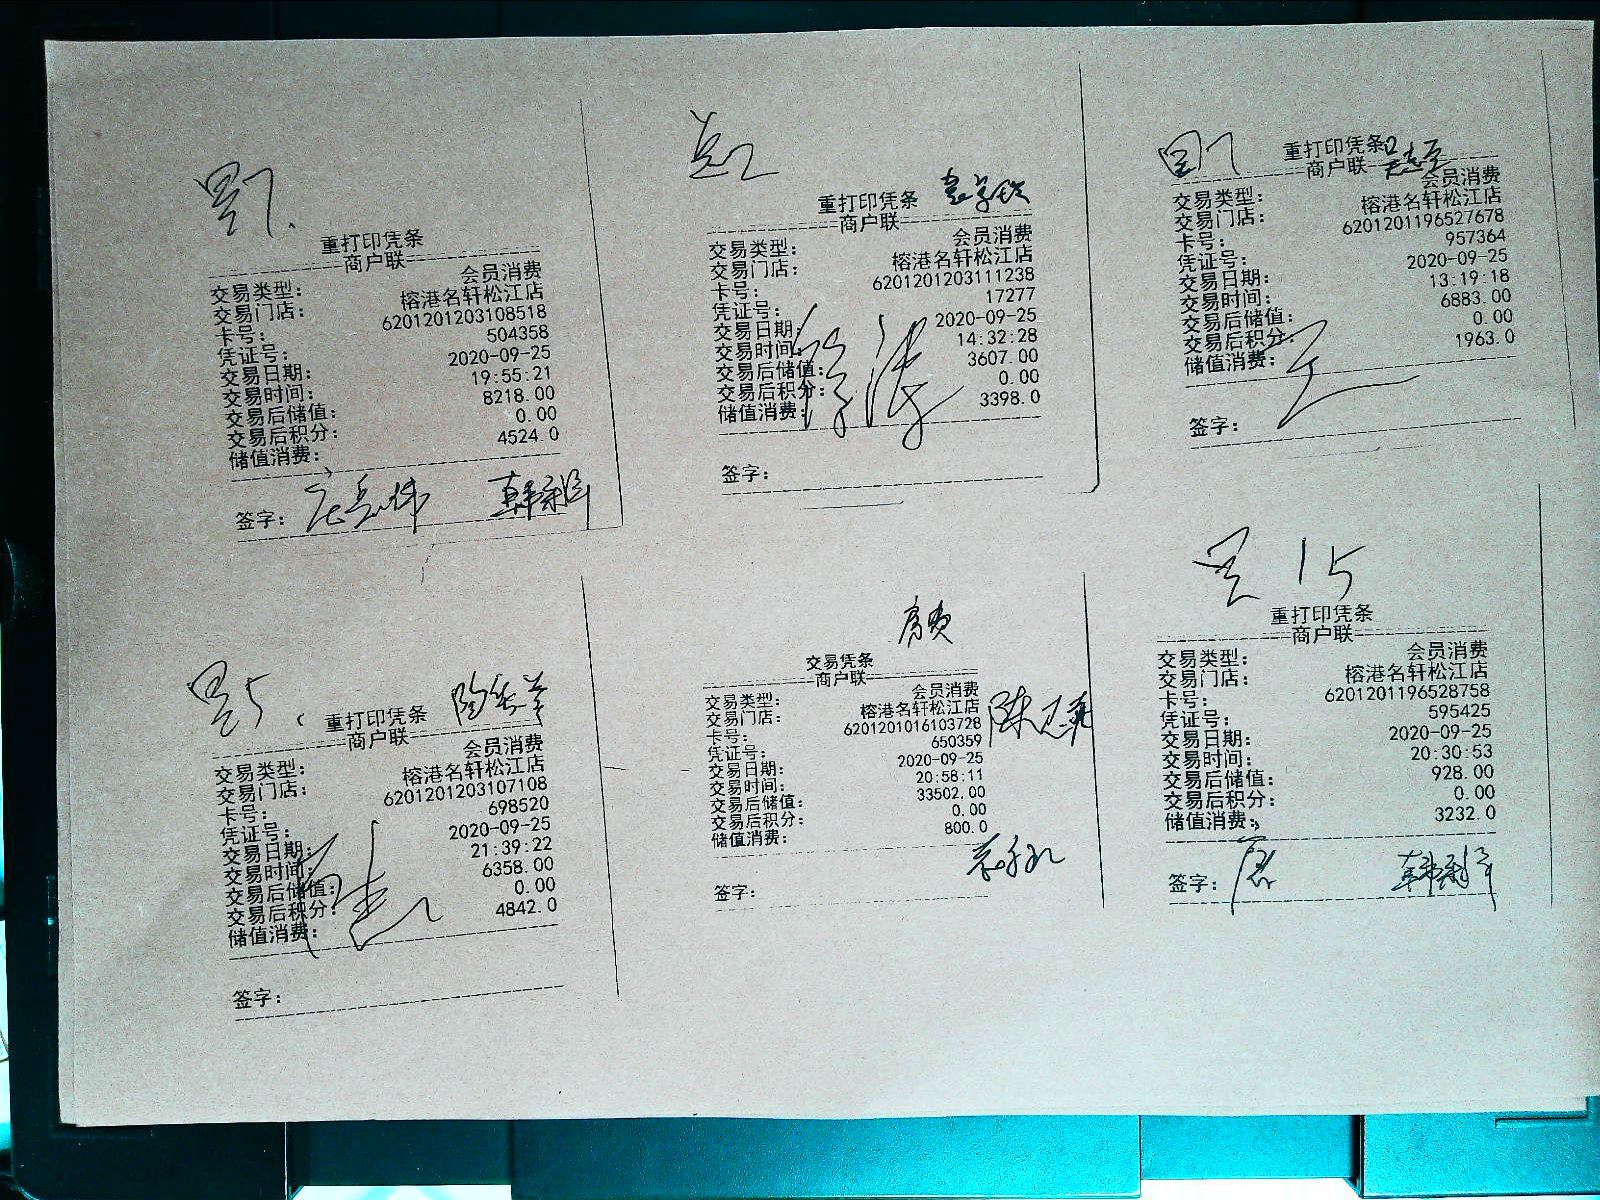 重打印凭条
商户联
交易类型： 会员消费
交易门店： 榕港名轩松江店
卡号： 6201201203108518
凭证号： 504358
交易日期： 2020-09-25
交易时间： 19:55:21
交易后储值： 8218.00
交易后积分： 0.00
储值消费： 4524.0
签字：
重打印凭条
商户联
交易类型： 会员消费
交易门店： 榕港名轩松江店
卡号： 6201201203111238
凭证号： 17277
交易日期： 2020-09-25
交易时间： 14:32:28
交易后储值： 3607.00
交易后积分： 0.00
储值消费： 3398.0
签字：
重打印凭条
商户联
交易类型： 会员消费
交易门店： 榕港名轩松江店
卡号： 6201201196527678
凭证号： 957364
交易日期： 2020-09-25
交易时间： 13:19:18
交易后储值： 6883.00
交易后积分： 0.00
储值消费： 1963.0
签字：
重打印凭条
商户联
交易类型： 会员消费
交易门店： 榕港名轩松江店
卡号： 6201201203107108
凭证号： 698520
交易日期： 2020-09-25
交易时间： 21:39:22
交易后储值： 6358.00
交易后积分： 0.00
储值消费： 4842.0
签字：
房费
交易凭条
商户联
交易类型： 会员消费
交易门店： 榕港名轩松江店
卡号： 6201201016103728
凭证号： 650359
交易日期： 2020-09-25
交易时间： 20:58:11
交易后储值： 33502.00
交易后积分： 0.00
储值消费： 800.0
签字：
15
重打印凭条
商户联
交易类型： 会员消费
交易门店： 榕港名轩松江店
卡号： 6201201196528758
凭证号： 595425
交易日期： 2020-09-25
交易时间： 20:30:53
交易后储值： 928.00
交易后积分： 0.00
储值消费： 3232.0
签字：